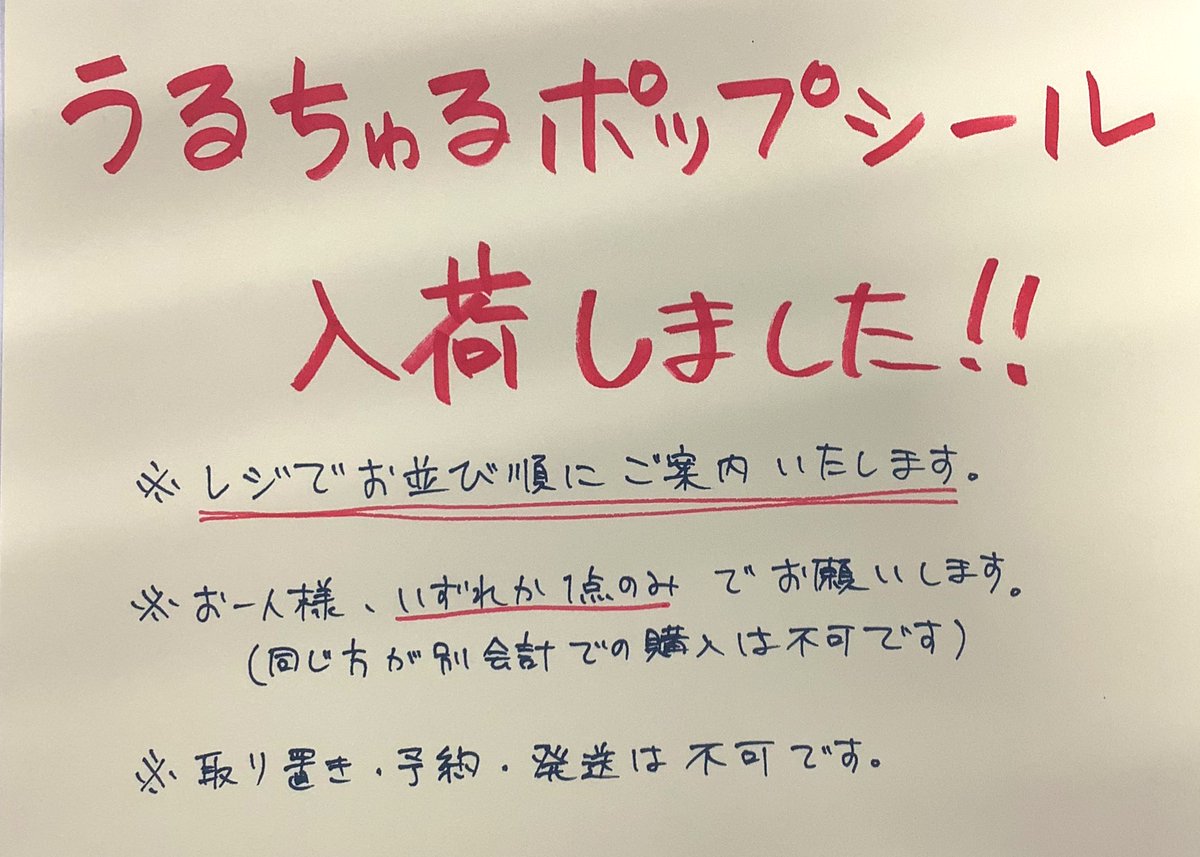 うるちゅるポップシール
入荷しました!!
※ レジでお並び順にご案内いたします。
※ お一人様、いずれか1点のみでお願いします。
(同じ方が別会計での購入は不可です)
※ 取り置き・予約・発送は不可です。